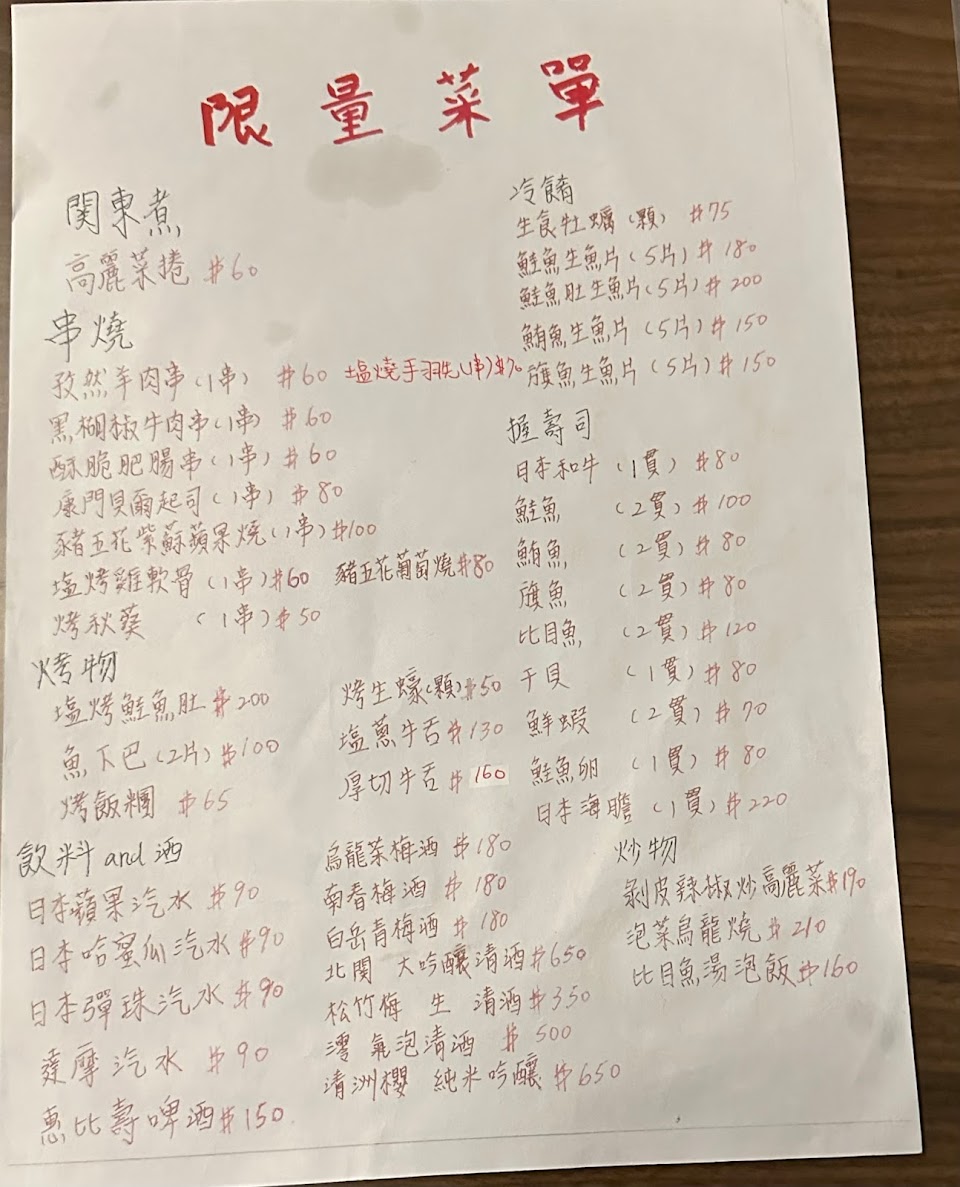 限量菜單
関東煮
高麗菜捲 $60
串燒
孜然羊肉串(1串) $60 塩燒手羽先(1串)$70
黑胡椒牛肉串(1串) $60
酥脆肥腸串(1串) $60
康門貝爾起司(1串) $80
豬五花紫蘇蘋果燒(1串)$100
塩烤雞軟骨(1串)$60 豬五花葡萄燒$80
烤秋葵 (1串)$50
烤物
塩烤鮭魚肚 $200
魚下巴(2片)$100
烤飯糰 $65
烤生蠔(顆)$50
塩蔥牛舌 $130
厚切牛舌 $160
冷餚
生食牡蠣(顆) $75
鮭魚生魚片(5片)$180
鮭魚肚生魚片(5片)$200
鮪魚生魚片(5片)$150
旗魚生魚片(5片)$150
握壽司
日本和牛(1貫)$80
鮭魚 (2貫)$100
鮪魚 (2貫)$80
旗魚 (2貫)$80
比目魚 (2貫)$120
干貝 (1貫)$80
鮮蝦 (2貫)$70
鮭魚卵 (1貫)$80
日本海膽(1貫)$220
飲料and酒
日本蘋果汽水 $90
日本哈蜜瓜汽水 $90
日本彈珠汽水 $90
達摩汽水 $90
惠比壽啤酒$150
烏龍茶梅酒 $180
南春梅酒 $180
白岳青梅酒 $180
北関 大吟釀清酒$650
松竹梅 生 清酒$350
澪 氣泡清酒 $500
清洲櫻 純米吟釀 $650
炒物
剝皮辣椒炒高麗菜$190
泡菜烏龍燒 $210
比目魚湯泡飯$160